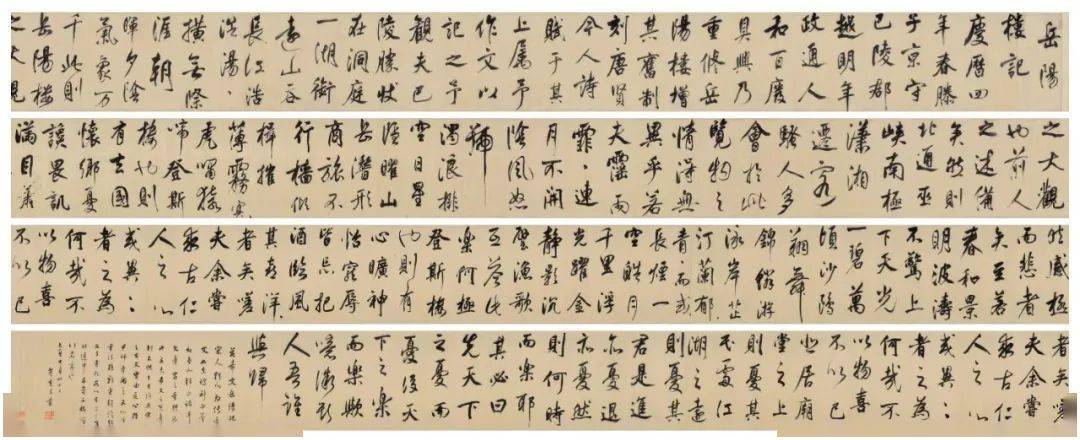 岳陽
樓記
慶曆四
年春滕
子京守
巴陵郡
越明年
政通人
和百廢
具興乃
重修岳
陽樓增
其舊制
刻唐賢
今人詩
賦于其
上屬予
作文以
記之予
觀夫巴
陵勝狀
在洞庭
一湖銜
遠山吞
長江浩
浩湯
橫無際
涯朝
暉夕陰
氣象万
千此則
岳陽樓
之大觀
之大觀
也前人
之述備
矣然則
北通巫
峽南極
瀟湘
遷客
騷人多
會於此
覽物之
情得無
異乎若
夫霪雨
霏〻連
月不開
陰風怒
號
濁浪排
空日星
隱曜山
岳潛形
商旅不
行檣傾
楫摧
薄霧冥
虎嘯猿
啼登斯
樓也則
有去國
懷鄉憂
讒畏譏
滿目蕭
然感極
而悲者
矣至若
春和景
明波濤
不驚上
下天光
一碧萬
頃沙鷗
翔舞
錦鱗游
泳岸芷
汀蘭郁
青而或
長煙一
空皓月
千里浮
光躍金
靜影沉
璧漁歌
互答此
樂何極
登斯樓
也則有
心曠神
怡寵辱
皆忘把
酒臨風
其喜洋
者矣嗟
夫余嘗
求古仁
人之心
或異〻
者之為
何哉不
以物喜
不以己
者矣嗟
夫余嘗
求古仁
人之心
或異〻
者之為
何哉不
以物喜
不以己
悲居廟
堂之上
則憂其
民處江
湖之遠
則憂其
君是進
亦憂退
亦憂然
則何時
而樂耶
其必曰
先天下
之憂而
憂後天
下之樂
而樂歟
噫微斯
人吾誰
與歸